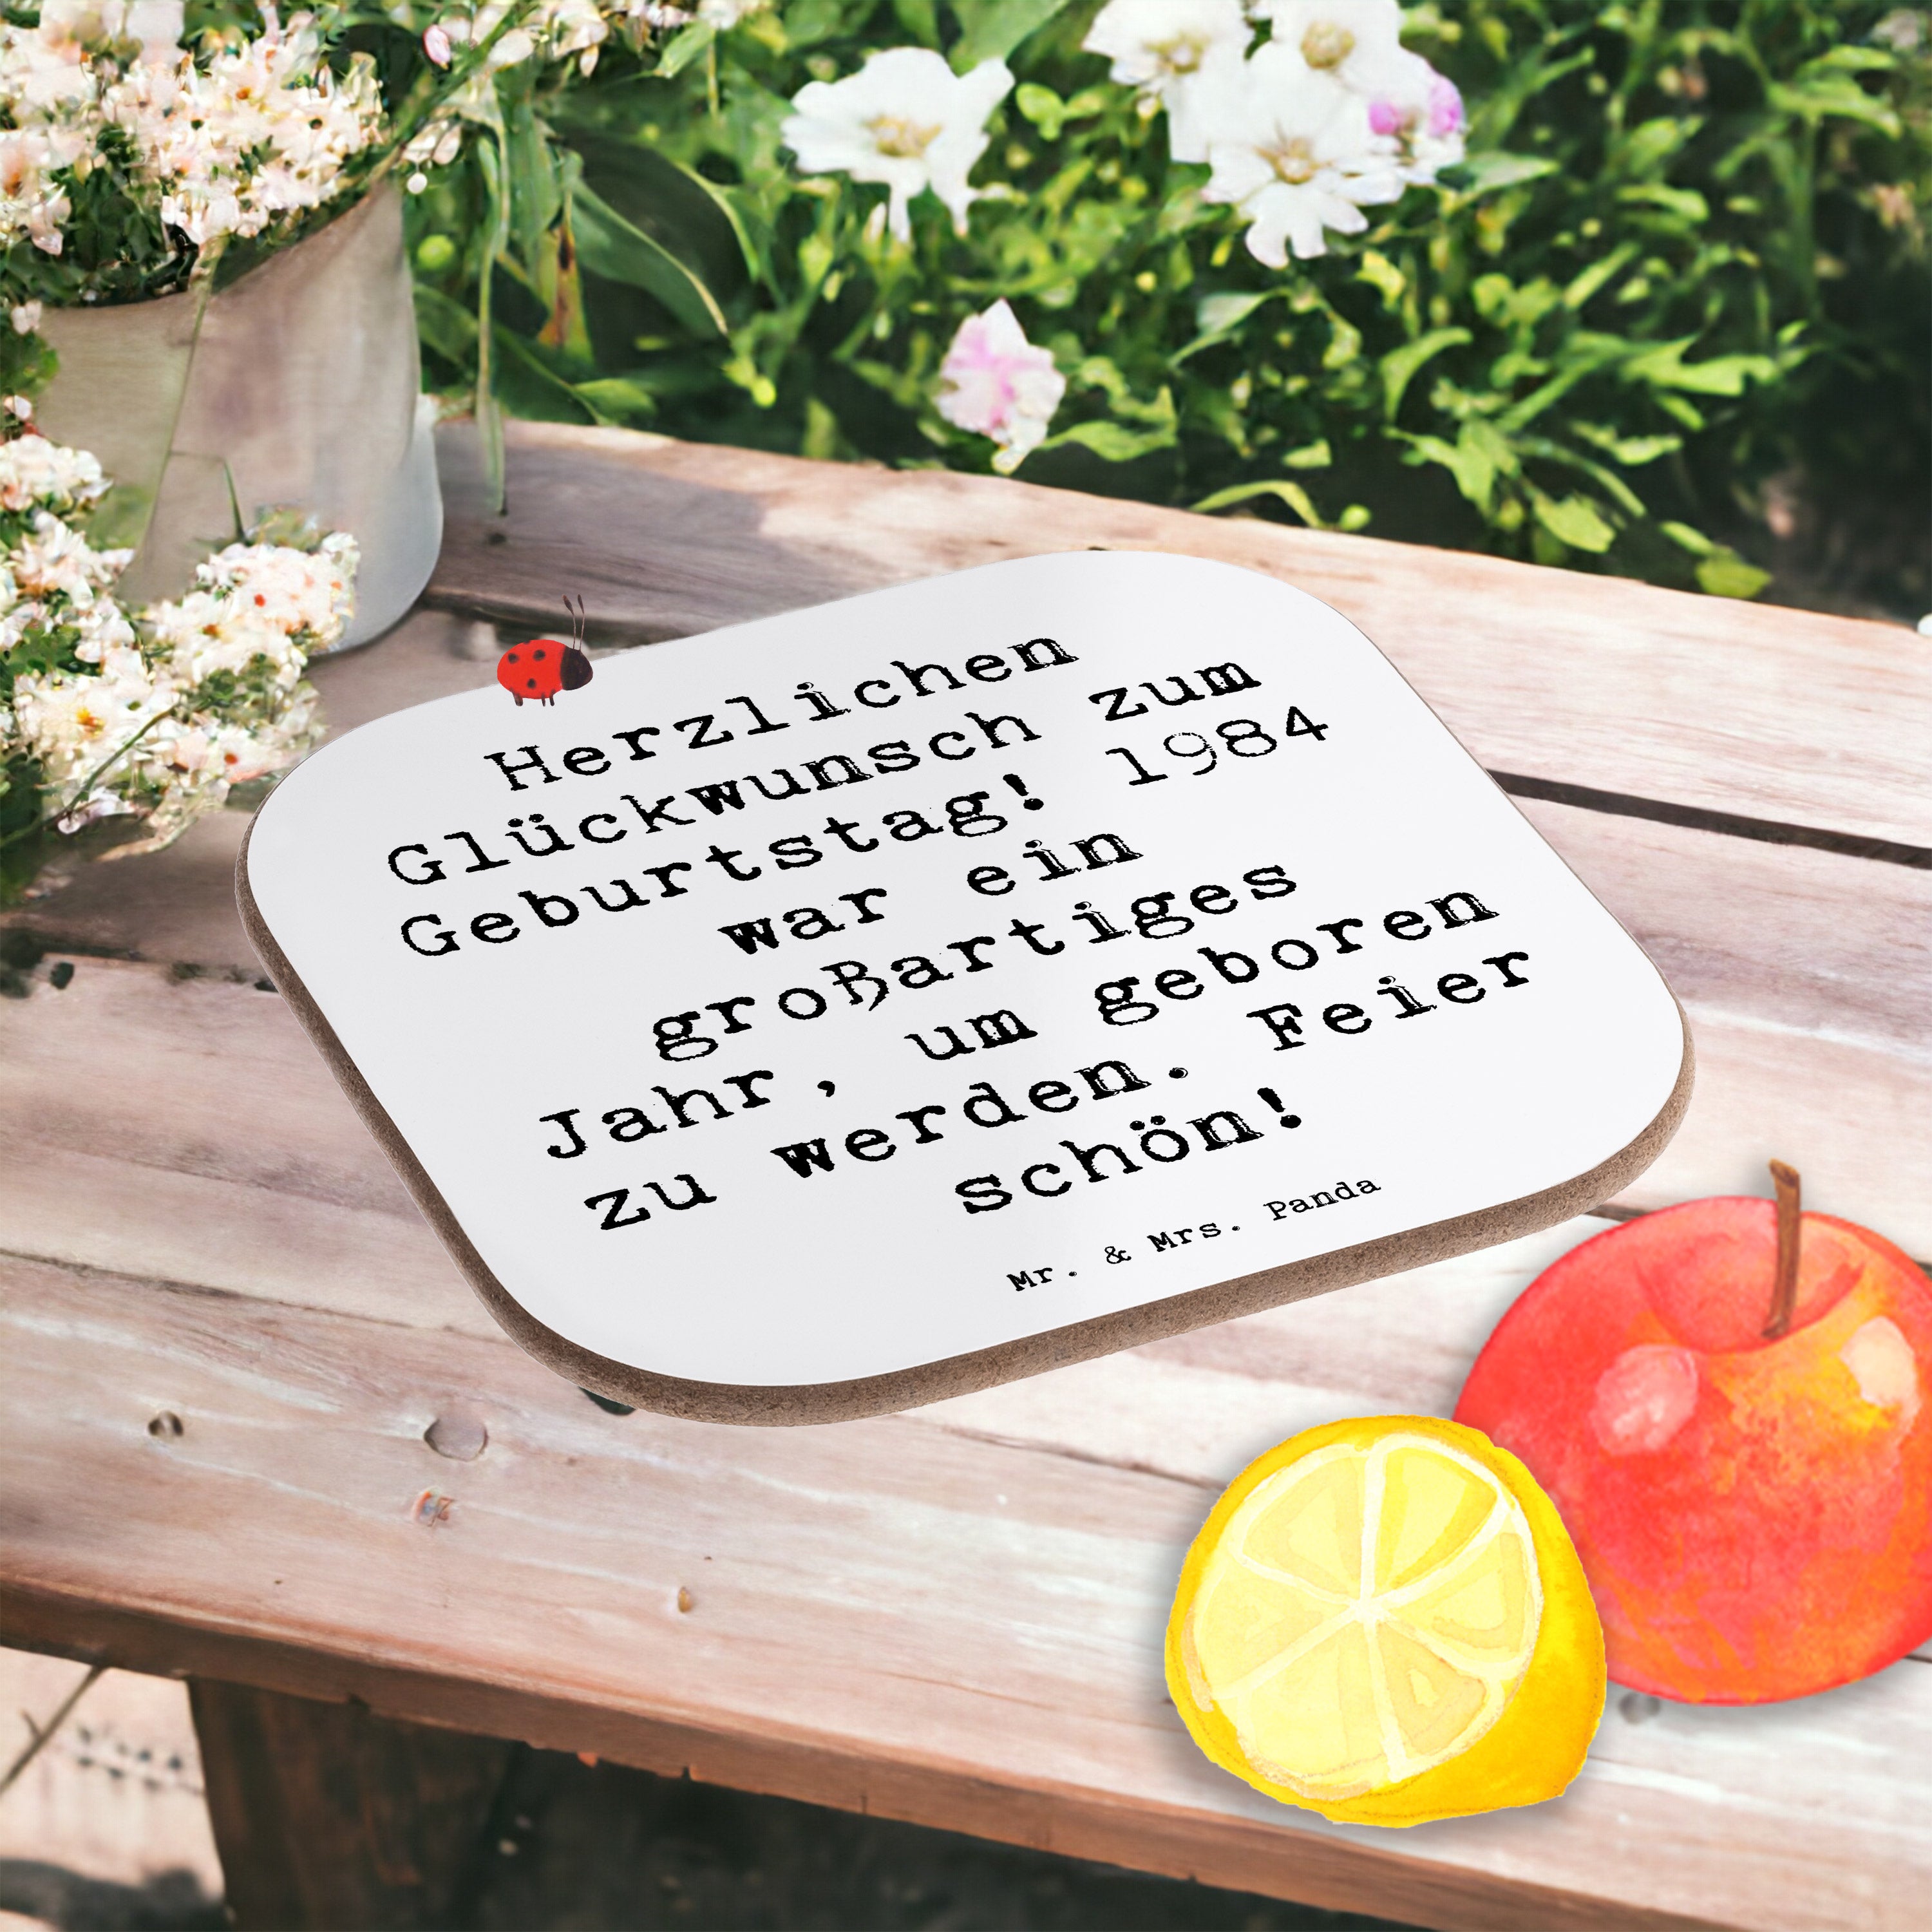 Herzlichen
Glückwunsch zum
Geburtstag! 1984
war ein
großartiges
Jahr, um geboren
zu werden. Feier
schön!
Mr. & Mrs. Panda